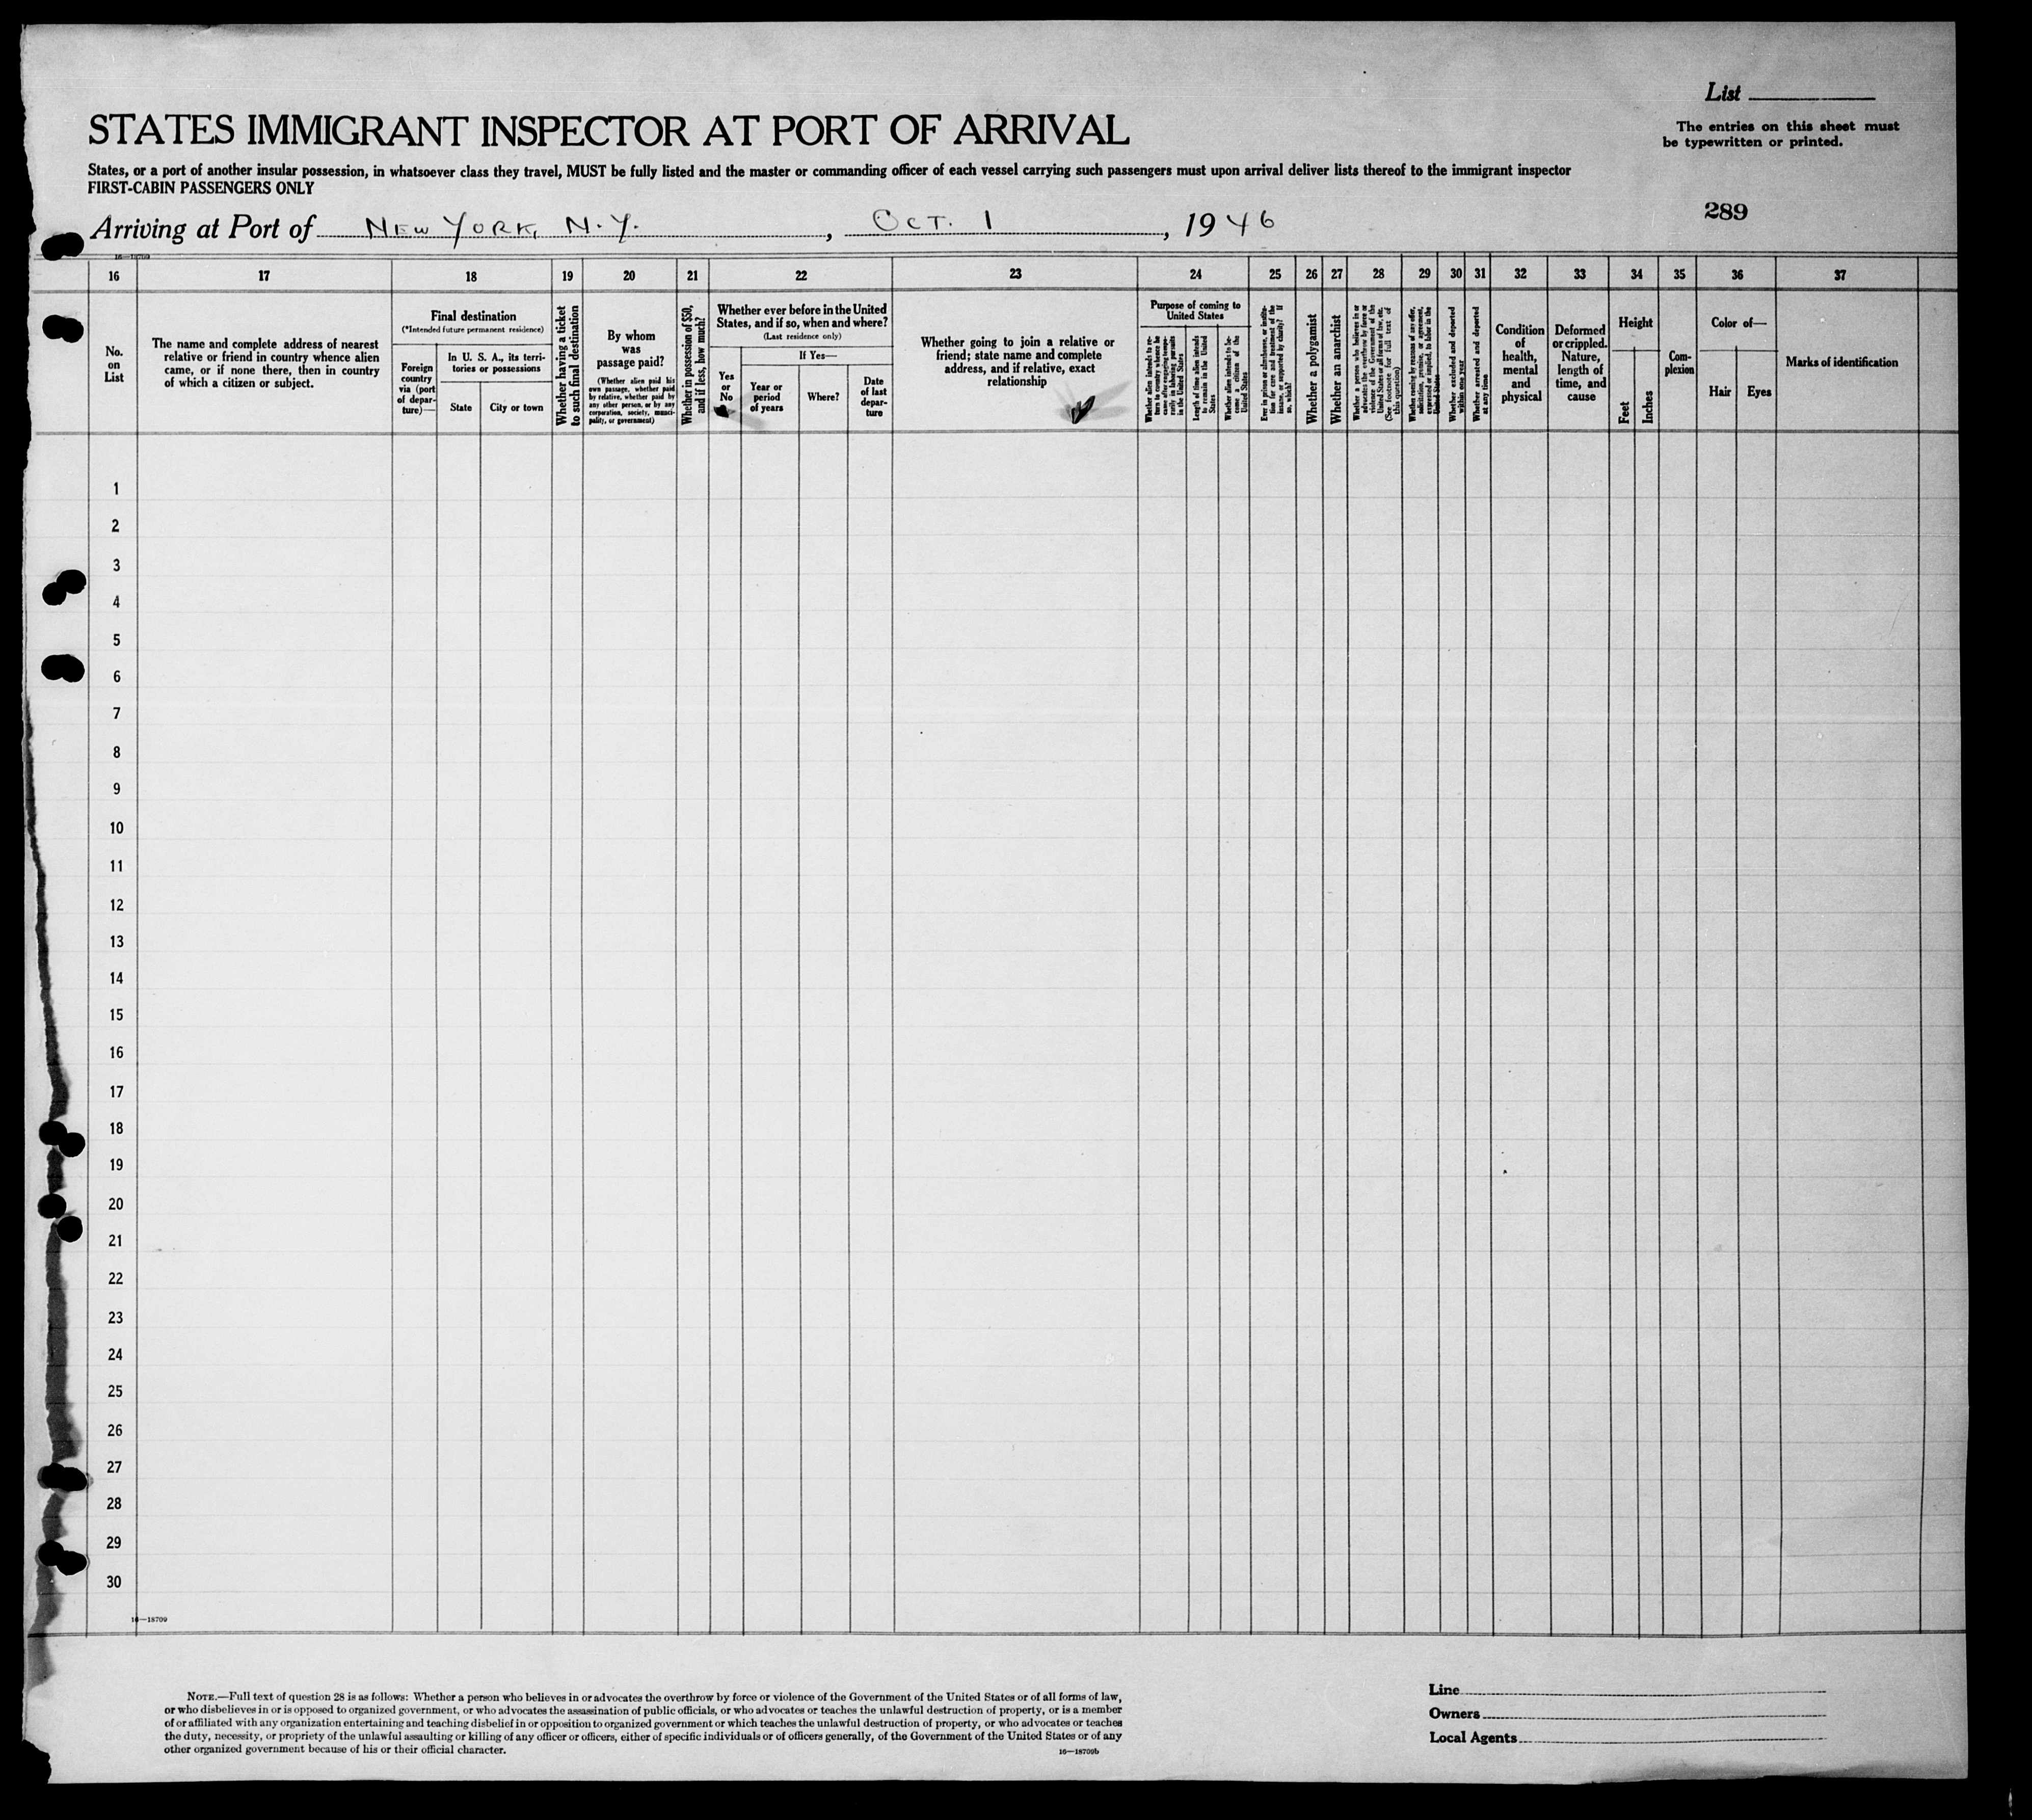 List
STATES IMMIGRANT INSPECTOR AT PORT OF ARRIVAL
The entries on this sheet must
be typewritten or printed.
States, or a port of another insular possession, in whatsoever class they travel, MUST be fully listed and the master or commanding officer of each vessel carrying such passengers must upon arrival deliver lists thereof to the immigrant inspector
FIRST-CABIN PASSENGERS ONLY
289
Arriving at Port of NEW YORK, N.Y., OCT. 1, 1946
16—18709
16 17 18 19 20 21 22 23 24 25 26 27 28 29 30 31 32 33 34 35 36 37
No.
on
List
The name and complete address of nearest
relative or friend in country whence alien
came, or if none there, then in country
of which a citizen or subject.
Final destination
(*Intended future permanent residence)
Foreign
country
via (port
of depar-
ture)—
In U. S. A., its terri-
tories or possessions
State
City or town
Whether having a ticket
to such final destination
By whom
was
passage paid?
(Whether alien paid his
own passage, whether paid
by relative, whether paid by
any other person, or by any
corporation, society, munici-
pality, or government)
Whether in possession of $50,
and if less, how much?
Whether ever before in the United
States, and if so, when and where?
(Last residence only)
Yes
or
No
If Yes—
Year or
period
of years
Where?
Date
of last
depar-
ture
Whether going to join a relative or
friend; state name and complete
address, and if relative, exact
relationship
Purpose of coming to
United States
Whether alien intends to re-
turn to country whence he
came after engaging tempo-
rarily in laboring pursuits
in the United States
Length of time alien intends
to remain in the United
States
Whether alien intends to be-
come a citizen of the
United States
Ever in prison or almshouse, or institu-
tion for care and treatment of the
insane, or supported by charity? If
so, which?
Whether a polygamist
Whether an anarchist
Whether a person who believes in or
advocates the overthrow by force or
violence of the Government of the
United States or all forms of law, etc.
(See footnote for full text of
this question)
Whether coming by reason of any offer,
solicitation, promise, or agreement,
expressed or implied, to labor in the
United States
Whether excluded and deported
within one year
Whether arrested and deported
at any time
Condition
of
health,
mental
and
physical
Deformed
or crippled.
Nature,
length of
time, and
cause
Height
Feet
Inches
Com-
plexion
Color of—
Hair
Eyes
Marks of identification
1
2
3
4
5
6
7
8
9
10
11
12
13
14
15
16
17
18
19
20
21
22
23
24
25
26
27
28
29
30
16—18709
NOTE.—Full text of question 28 is as follows: Whether a person who believes in or advocates the overthrow by force or violence of the Government of the United States or of all forms of law,
or who disbelieves in or is opposed to organized government, or who advocates the assassination of public officials, or who advocates or teaches the unlawful destruction of property, or is a member
of or affiliated with any organization entertaining and teaching disbelief in or opposition to organized government or which teaches the unlawful destruction of property, or who advocates or teaches
the duty, necessity, or propriety of the unlawful assaulting or killing of any officer or officers, either of specific individuals or of officers generally, of the Government of the United States or of any
other organized government because of his or their official character.
16—18709b
Line
Owners
Local Agents